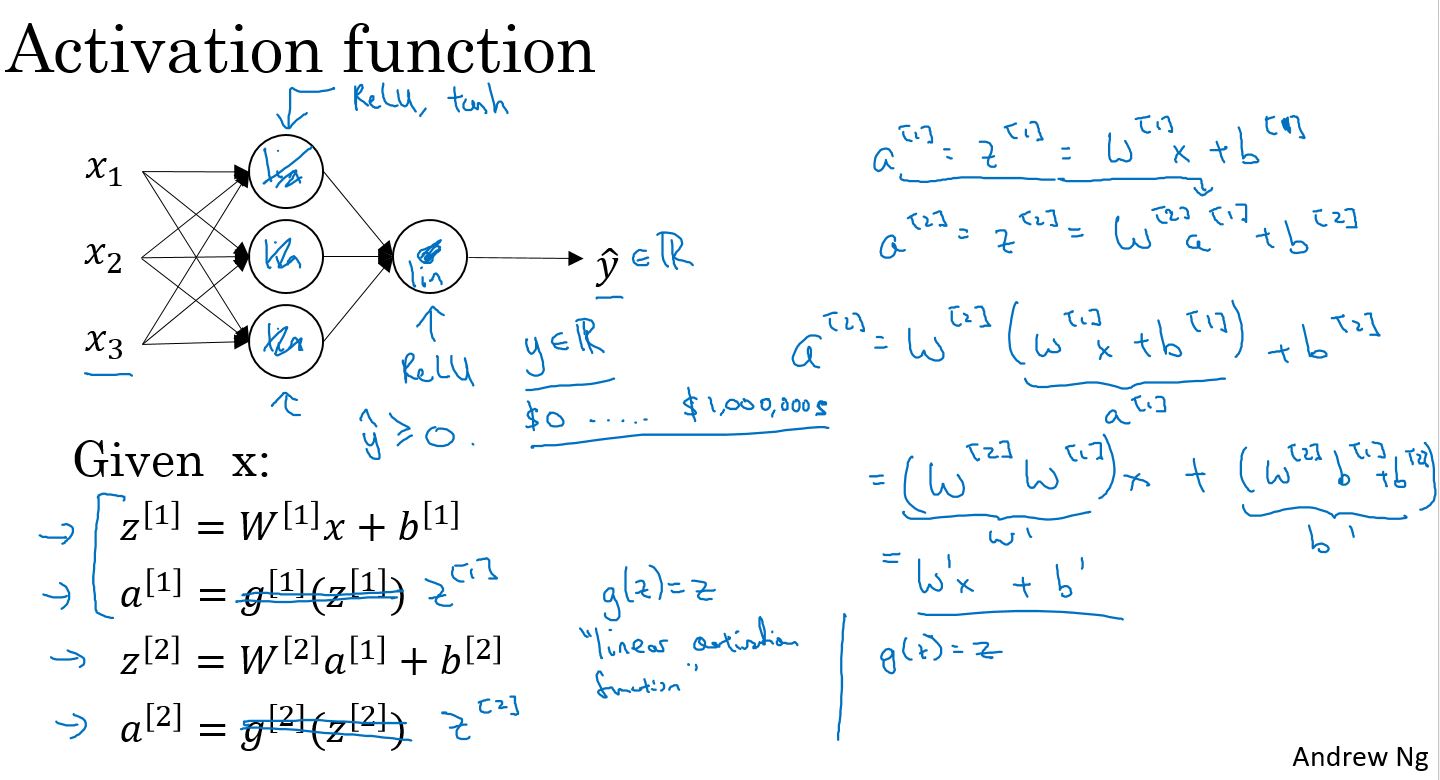 Activation function
ReLU, tanh
x₁
x₂
x₃
lin
lin
lin
lin
ŷ ∈ ℝ
ReLU
y ∈ ℝ
ŷ ≥ 0.
$0 ..... $1,000,000s
Given x:
→ z^[1] = W^[1]x + b^[1]
→ a^[1] = g^[1](z^[1]) z^[1]
→ z^[2] = W^[2]a^[1] + b^[2]
→ a^[2] = g^[2](z^[2]) z^[2]
g(z) = z
"linear activation
function"
a^[1] = z^[1] = W^[1] x + b^[1]
a^[2] = z^[2] = W^[2] a^[1] + b^[2]
a^[2] = W^[2] (W^[1] x + b^[1]) + b^[2]
a^[1]
= (W^[2] W^[1]) x + (W^[2] b^[1] + b^[2])
W' b'
= W'x + b'
g(z) = z
Andrew Ng